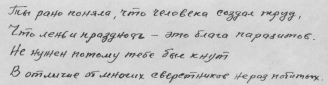 Ты рано поняла, что человека создал труд,
Что лень и праздность – это блага паразитов.
Не нужен потому тебе был кнут
В отличие от многих сверстников не раз побитых.